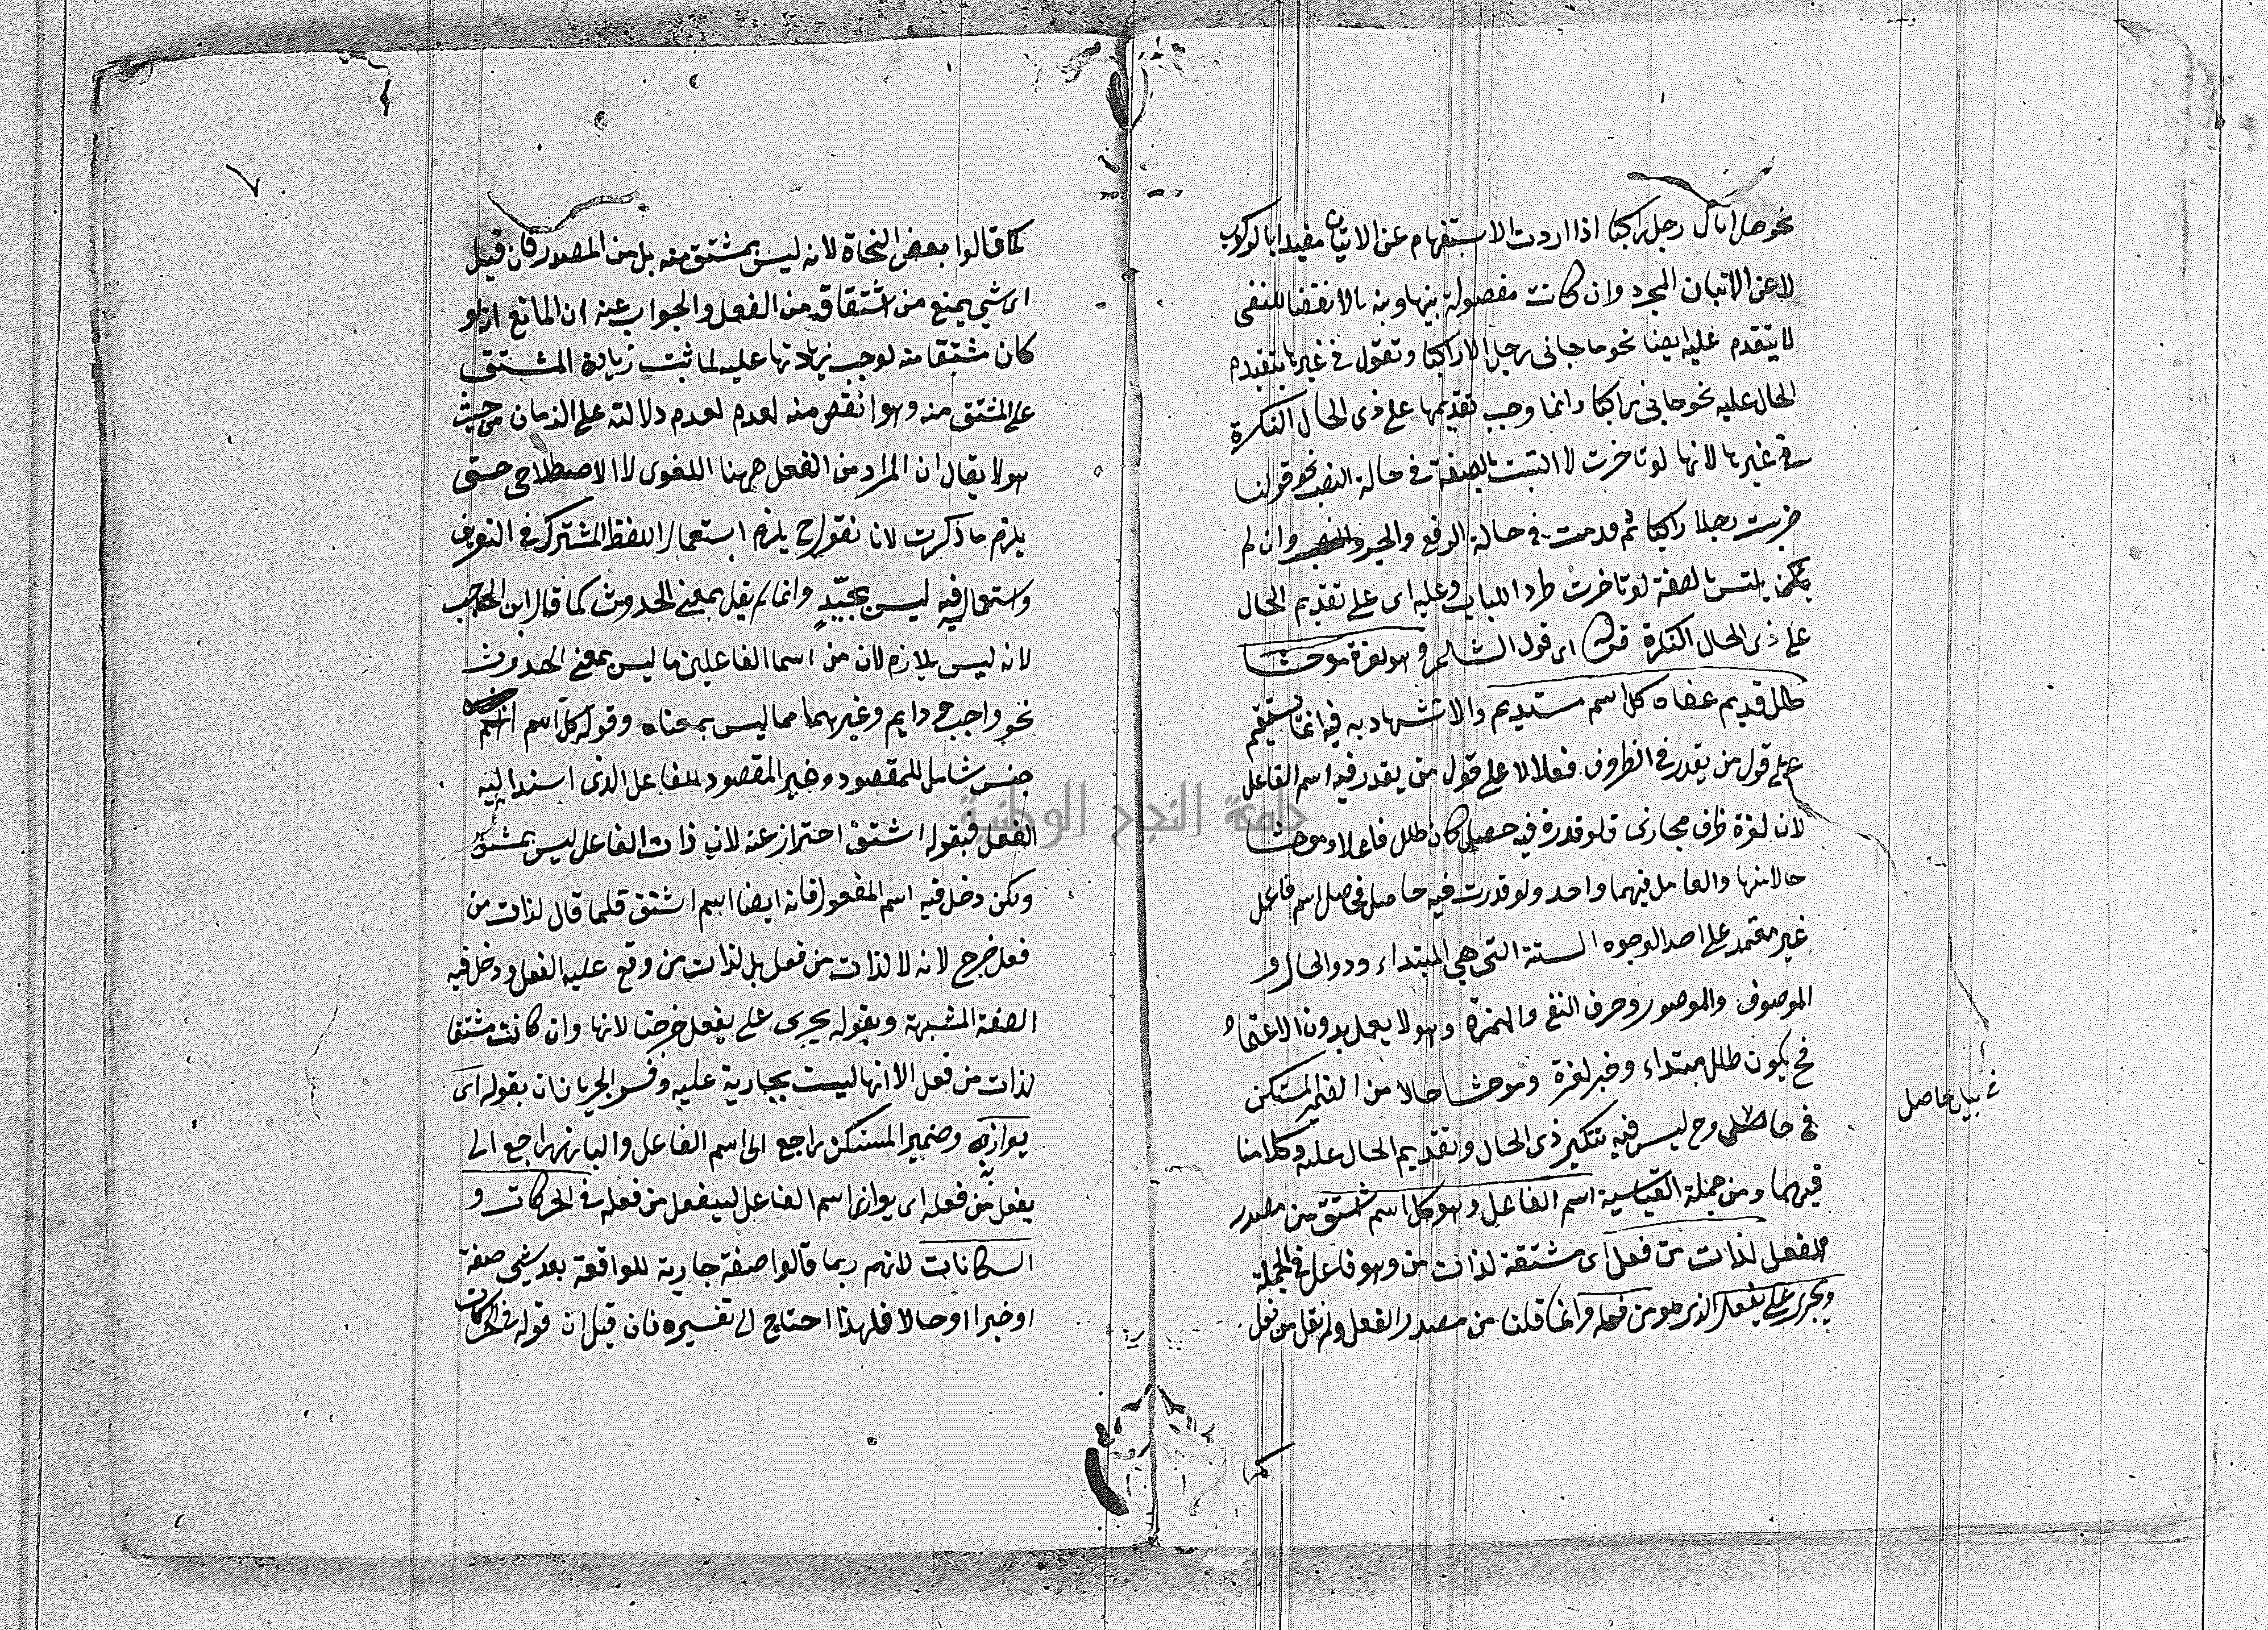 نحو هل اتاك رجل راكبا اذا اردت الاستفهام عن الاتيان مقيدا بالركوب
لا عن الاتيان المجرد وان كانت مفصولة بينها وبينه بالا نقضا للنفى
لا يتقدم عليه ايضا نحو ما جانى رجل الا راكبا وتقول فى غيرها بتقديم
الحال عليه نحو جانى راكبا وانما وجب تقديمها على ذى الحال النكرة
فى غيرها لانها لو تاخرت لالتبست بالصفة فى حالة النصب نحو قولنا
ضربت رجلا راكبا ثم قدمت فى حالة الرفع والجر وان لم
يكن يلتبس بالصفة لو تاخرت طردا للباب وعليه اى على تقديم الحال
على ذى الحال النكرة قوله اى قول الشاعر وهو لعزة موحشا
طلل قديم عفاه كل اسحم مستديم والاستشهاد به فيه انما يستقيم
على قول من يقدر فى الظروف فعلا لا على قول من يقدر فيه اسم الفاعل
لان لعزة ظرف مجازى فلو قدرة فيه حصل كان طلل فاعلا وموحشا
حالا منها والعامل فيهما واحد ولو قدرت فيه حاصل فحاصل اسم فاعل
غير معتمد على احد الوجوه الستة التى هى المبتداء وذو الحال و
الموصوف والموصول وحرف النفى والهمزة وهو لا يعمل بدون الاعتماد
فح يكون طلل مبتداء وخبر لعزة وموحشا حالا من الضمير المستكن
فى حاصل وح ليس فيه تنكير ذى الحال وتقديم الحال عليه وكلامنا
فيهما ومن جملة القياسية اسم الفاعل وهو كل اسم اشتق من مصدر
الفعل لذات من فعل اى مشتقة لذات من وهو فاعل فى الجملة
ويجرى على يفعل الذى هو من فعله وانما قلنا من مصدر الفعل ولم نقل من فعل
فى بيان حاصل
كما
٧
كما قالوا بعض النحاة لانه ليس بمشتق منه بل من المصدر فان قيل
اى شيى يمنع من اشتقاقه من الفعل والجواب عنه ان المانع انه لو
كان مشتقا منه لوجب زيادتها عليه لما ثبت زيادة المشتق
على المشتق منه وهو انقص منه لعدم لعدم دلالته على الزمان من حيث
هو لا يقال ان المراد من الفعل ههنا اللغوى لا الاصطلاحى حتى
يلزم ما ذكرت لانا نقول ح يلزم استعمال اللفظ المشترك فى التعريف
واستعماله فيه ليس بجيّدٍ وانما لم يقل بمعنى الحدوث كما قال ابن الحاجب
لانه ليس بلازم لان من اسما الفاعلين ما ليس بمعنى الحدوث
نحو واجب و دايم وغيرهما مما ليس بمعناه وقوله كل اسم
جنس شامل للمقصود وغير المقصود للفاعل الذى اسند اليه
الفعل فبقوله اشتق احتراز عنه لان ذات الفاعل ليس بمشتق
ولكن دخل فيه اسم المفعول فانه ايضا اسم اشتق فلما قال لذات من
فعل خرج لانه لا لذات من فعل بل لذات من وقع عليه الفعل ودخل فيه
الصفة المشبهة وبقوله يجرى على يفعل خرجتا لانها وان كانت مشتقا
لذات من فعل الا انها ليست بجارية عليه وفسر الجريان بقوله اى
يوازيه وضمير المستكن راجع الى اسم الفاعل والبارز راجع الى
يفعل من فعله اى يوازى اسم الفاعل ليفعل من فعله فى الحركات و
السكانات لانهم ربما قالوا صفة جارية للواقعة بعد شيى صفة
او خبرا او حالا فلهذا احتاج الى تفسيره فان قيل ان قوله فى الحركات
جامعة النجاح الوطنية